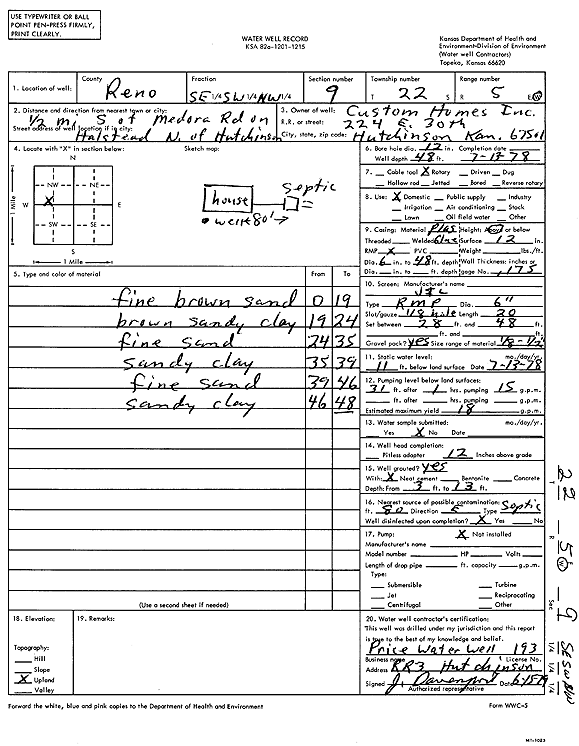 USE TYPEWRITER OR BALL
POINT PEN-PRESS FIRMLY,
PRINT CLEARLY.
WATER WELL RECORD
KSA 82a-1201-1215
Kansas Department of Health and
Environment-Division of Environment
(Water well Contractors)
Topeka, Kansas 66620
1. Location of well: County Reno Fraction SE 1/4 SW 1/4 NW 1/4 Section number 9 Township number T 22 S Range number R 5 E/W
2. Distance and direction from nearest town or city: 1/2 mi S of Medora Rd on
Street address of well location if in city: Halstead N. of Hutchinson
3. Owner of well: Custom Homes Inc.
R.R. or street: 224 E. 30th
City, state, zip code: Hutchinson Kan. 67501
4. Locate with "X" in section below: Sketch map:
N
NW NE
W X E
SW SE
S
1 Mile
1 Mile
house
Septic
well 80'
5. Type and color of material From To
fine brown sand 0 19
brown sandy clay 19 24
fine sand 24 35
sandy clay 35 39
fine sand 39 46
sandy clay 46 48
(Use a second sheet if needed)
6. Bore hole dia. 12 in. Completion date
Well depth 48 ft. 7-13-78
7. Cable tool X Rotary Driven Dug
Hollow rod Jetted Bored Reverse rotary
8. Use: X Domestic Public supply Industry
Irrigation Air conditioning Stock
Lawn Oil field water Other
9. Casing: Material Plas Height: Above or below
Threaded Welded Glue Surface 12 in.
RMP X PVC Weight lbs./ft.
Dia. 6 in. to 48 ft. depth Wall Thickness: inches or
Dia. in. to ft. depth gage No. .175
10. Screen: Manufacturer's name
Type RMP Dia. 6"
Slot/gauze 1/8 hole Length 20
Set between 28 ft. and 48 ft.
ft. and ft.
Gravel pack? yes Size range of material 1/8-1/2
11. Static water level: mo./day/yr.
11 ft. below land surface Date 7-13-78
12. Pumping level below land surfaces:
31 ft. after 1 hrs. pumping 15 g.p.m.
ft. after hrs. pumping g.p.m.
Estimated maximum yield 18 g.p.m.
13. Water sample submitted: mo./day/yr.
Yes X No Date
14. Well head completion:
Pitless adapter 12 Inches above grade
15. Well grouted? yes
With: X Neat cement Bentonite Concrete
Depth: From 3 ft. to 13 ft.
16. Nearest source of possible contamination: Septic
ft. 80 Direction E Type
Well disinfected upon completion? X Yes No
17. Pump: X Not installed
Manufacturer's name
Model number HP Volts
Length of drop pipe ft. capacity g.p.m.
Type:
Submersible Turbine
Jet Reciprocating
Centrifugal Other
18. Elevation:
Topography:
Hill
Slope
X Upland
Valley
19. Remarks:
20. Water well contractor's certification:
This well was drilled under my jurisdiction and this report
is true to the best of my knowledge and belief.
Price Water Well 193
Business name License No.
Address RR3 Hutchinson
Signed J. Davenport Date
Authorized representative
Forward the white, blue and pink copies to the Department of Health and Environment
Form WWC-5
T 22 - R 5 W - Sec 9
1/4 1/4 1/4